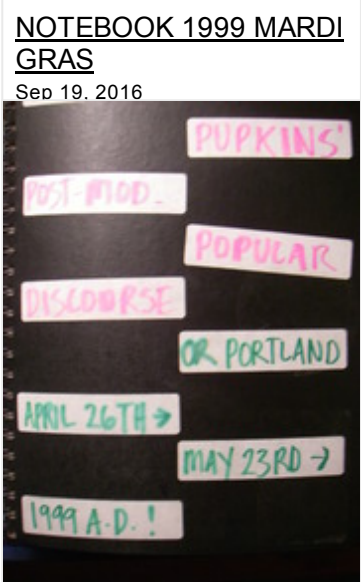 NOTEBOOK 1999 MARDI
GRAS
Sep 19, 2016
PUPKINS'
POST-MOD.
POPULAR
DISCOURSE
OR PORTLAND
APRIL 26TH →
MAY 23RD →
1999 A.D. !